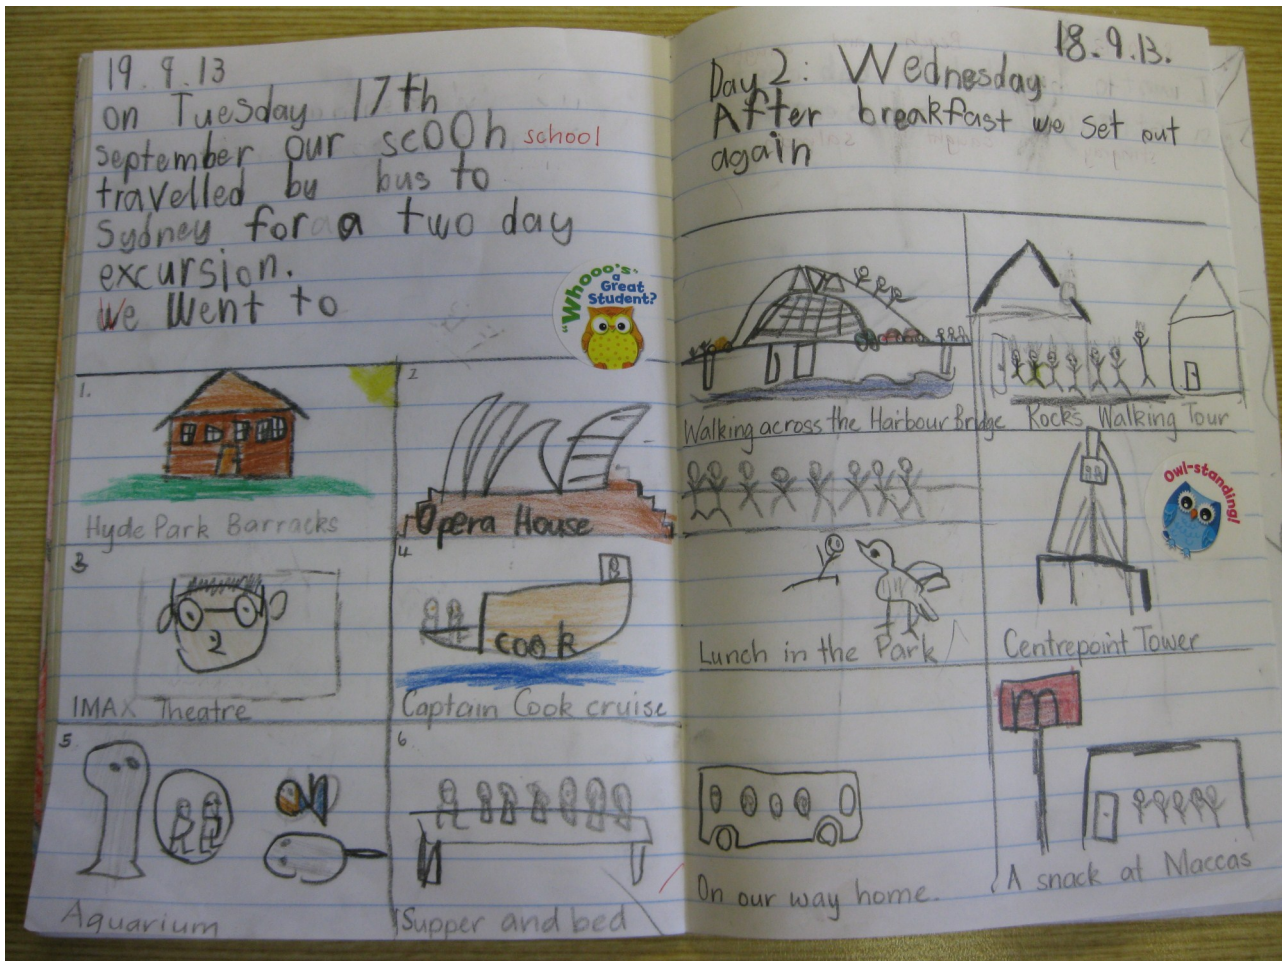 19.9.13
on Tuesday 17th
september our scOOh school
travelled by bus to
Sydney for a two day
excursion.
We Went to
"Whooo's a Great Student?"
1.
Hyde Park Barracks
2
Opera House
3
IMAX Theatre
4
cook
Captain Cook cruise
5
Aquarium
6
Supper and bed
18.9.13.
Day 2: Wednesday
After breakfast we set out
again
Walking across the Harbour Bridge
Rocks Walking Tour
Lunch in the Park
Owl-standing!
Centrepoint Tower
On our way home.
m
A snack at Maccas